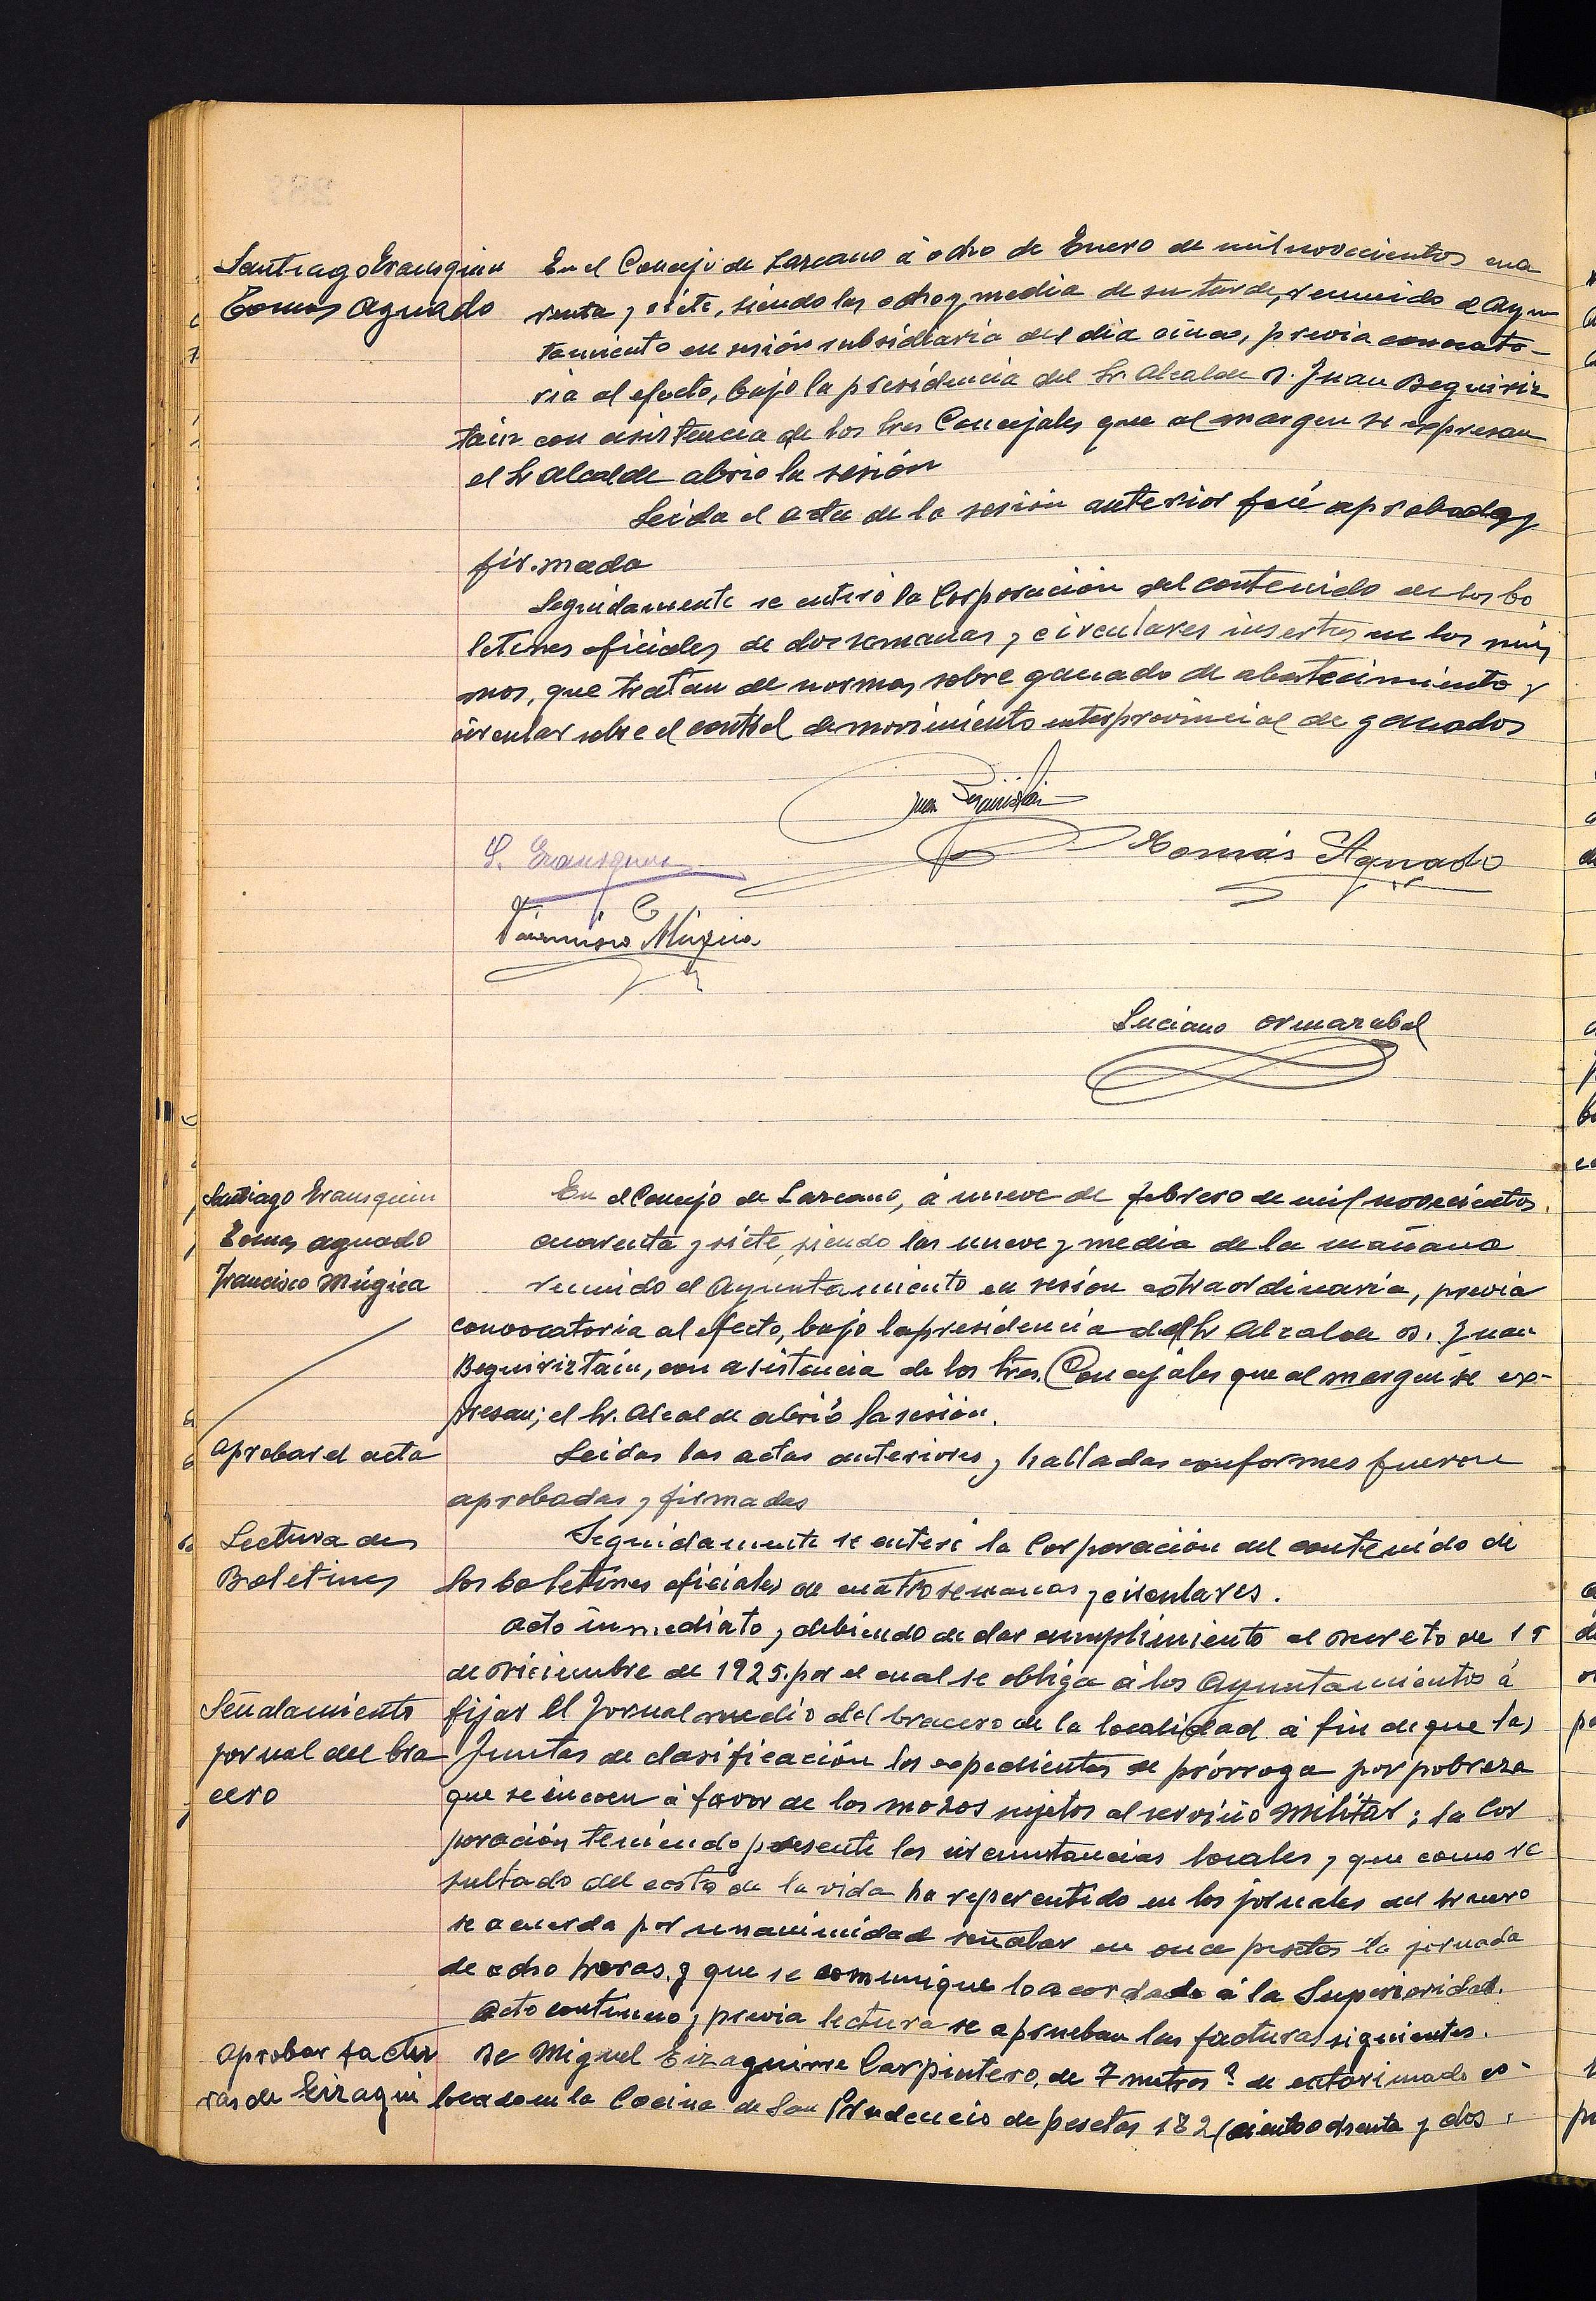 Santiago Erausquin
Tomas Aguado
En el Concejo de Lazcano á ocho de Enero de mil novecientos cua
renta y siete, siendo las ocho y media de su tarde, reunido el Ayun
tamiento en sesión subsidiaria del dia cinco, previa convocato-
ria al efecto, bajo la presidencia del Sr. Alcalde D. Juan Beguiriz
tain con asistencia de los Sres Concejales que al margen se expresan
el Sr Alcalde abrio la sesión
Leida el acta de la sesión anterior fué aprobada y
firmada
Seguidamente se enteró la Corporación del contenido de los bo
letines oficiales de dos semanas y circulares insertas en los mis
mos, que tratan de normas sobre ganado de abastecimiento y
circular sobre el control de movimiento interprovincial de ganados
Juan Beguiristain
S. Erausquin
Tomás Aguado
Francisco Múgica
Luciano Ormazabal
Santiago Erausquin
Tomas Aguado
Francisco Múgica
En el Concejo de Lazcano, á nueve de febrero de mil novecientos
cuarenta y siete, siendo las nueve y media de la mañana
reunido el Ayuntamiento en sesión extraordinaria, previa
convocatoria al efecto, bajo la presidencia del Sr Alcalde D. Juan
Beguiriztain, con asistencia de los Sres. Concejales que al margen se ex-
presan; el Sr. Alcalde abrió la sesión.
Aprobar el acta
Leidas las actas anteriores y halladas conformes fueron
aprobadas y firmadas
Lectura de
Boletines
Seguidamente se enteró la Corporación del contenido de
los boletines oficiales de cuatro semanas y circulares.
Acto inmediato y debiendo de dar cumplimiento al Decreto de 15
de Diciembre de 1925. por el cual se obliga á los Ayuntamientos á
Señalamiento
jornal del bra
cero
fijar el Jornal medio del bracero de la localidad á fin de que las
Juntas de clasificación los expedientes de prórroga por pobreza
que se incoen á favor de los mozos sujetos al servicio Militar; la Cor
poración teniendo presente las circunstancias locales y que como re
sultado del costo de la vida ha repercutido en los jornales del bracero
se acuerda por unanimidad señalar en once pesetas la jornada
de ocho horas, y que se comunique lo acordado á la Superioridad.
Acto continuo y previa lectura se aprueban las facturas siguientes.
Aprobar factu
ras de Eizagui
De Miguel Eizaguirre Carpintero, de 7 metros 2 de entarimado co-
locado en la Cocina de San Prudencio de pesetas 182 (ciento ochenta y dos